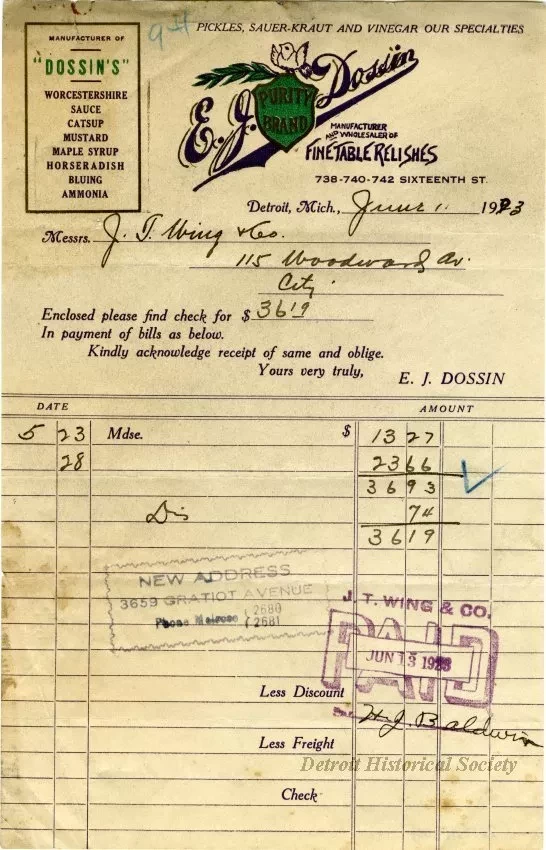 PICKLES, SAUER-KRAUT AND VINEGAR OUR SPECIALTIES
MANUFACTURER OF
"DOSSIN'S"
WORCESTERSHIRE
SAUCE
CATSUP
MUSTARD
MAPLE SYRUP
HORSERADISH
BLUING
AMMONIA
E. J. Dossin
PURITY
BRAND
MANUFACTURER
AND WHOLESALER OF
FINE TABLE RELISHES
738-740-742 SIXTEENTH ST.
Detroit, Mich., June 1 1923
Messrs. J. T. Wing & Co.
115 Woodward Av.
City
Enclosed please find check for $ 3619
In payment of bills as below.
Kindly acknowledge receipt of same and oblige.
Yours very truly,
E. J. DOSSIN
DATE AMOUNT
5 23 Mdse. $ 13 27
28 23 66
36 93
Dis 74
36 19
NEW ADDRESS
3659 GRATIOT AVENUE
Phone Melrose 2680
2681
J. T. WING & CO.
PAID
JUN 13 1923
Less Discount
H. J. Baldwin
Less Freight
Detroit Historical Society
Check